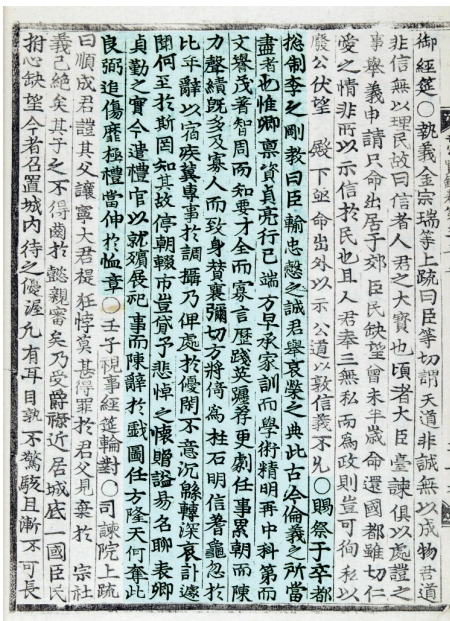 御經筵○執義金宗瑞等上疏曰臣等切謂天道非誠無以成物君道
非信無以理民故曰信者人君之大寶也頃者大臣臺諫俱以處證之
事擧義申請只命出居于郊臣民缺望曾未半歲命還國都雖切仁
愛之情非所以示信於民也且人君奉三無私而爲政則豈可徇私以
廢公伏望 殿下亟命出外以示公道以敦信義不允○賜祭于卒都
捴制李之剛敎曰臣輸忠懿之誠君擧哀榮之典此古今倫義之所當
盡者也惟卿稟資貞亮行己端方早承家訓而學術精明再中科第而
文譽茂著智周而知要才全而寡言歷踐英躔荐更劇任事累朝而陳
力聲績旣多及寡人而致身贊襄彌切方將倚爲柱石明信蓍龜忽於
比年辭以宿疾冀專事於調攝乃俾處於優閑不意沉緜轉深哀訃遽
聞何至於斯罔知其故停朝輟市豈貸予悲悼之懷贈謚易名聊表卿
貞勤之實今遣禮官以就殯展祀事而陳辭於戲圖任方隆天何奪此
良弼追傷靡極禮當伸於恤章○壬子視事經筵輪對○司諫院上疏
曰順成君證其父讓寧大君禔狂悖莫甚得罪於君父見棄於 宗社
義已絶矣其子之不得齒於懿親審矣乃受爵祿近居城底一國臣民
拊心缺望今者召置城內待之優渥凡有耳目孰不驚駭且漸不可長